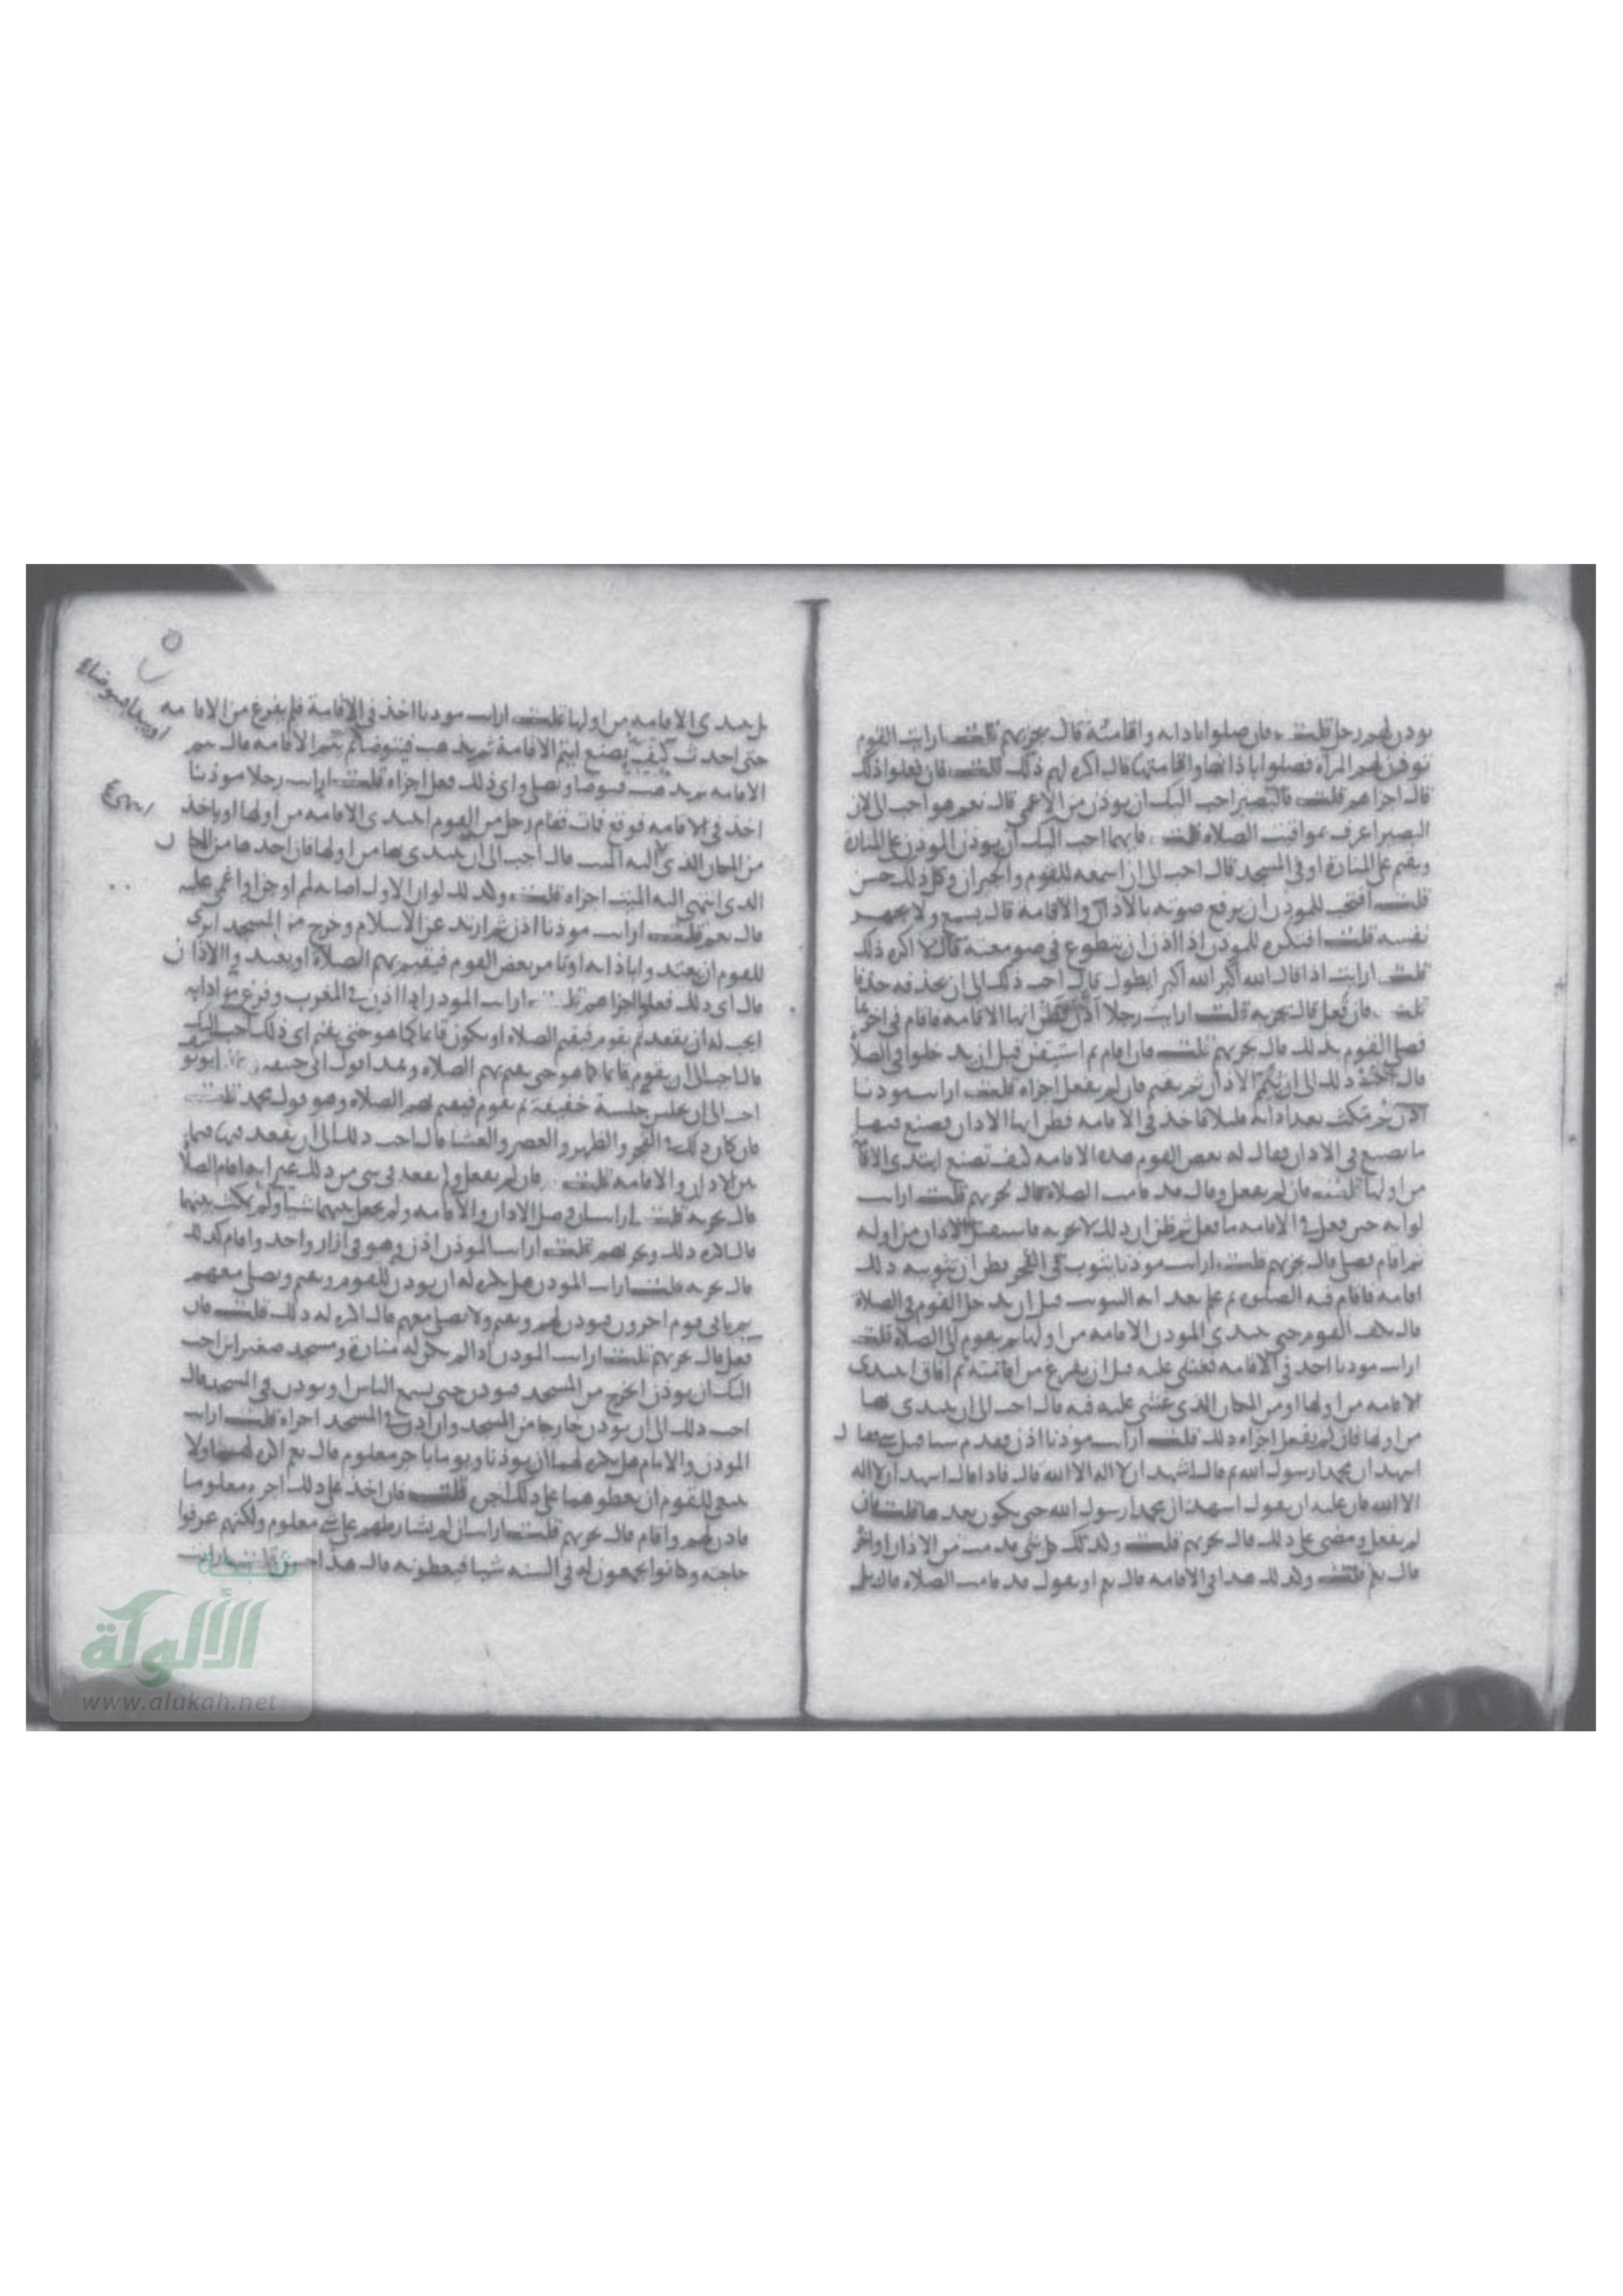 يودن لهم رجل قلت فان صلوا باذانه واقامته قال يجزيهم قلت ارايت القوم
توذن لهم المراه فصلوا باذانها واقامتها قال اكره لهم ذلك قلت فان فعلوا ذلك
قال اجزاهم قلت فالبصير احب اليك ان يوذن من الاعمى قال نعم هو احب الى لان
البصير اعرف بمواقيت الصلاه قلت فايهما احب اليك ان يوذن الموذن على المنارة
ويقيم على المنارة او في المسجد قال احب الى ان اسمعه للقوم والجيران وكل ذلك حسن
قلت افتحب للموذن ان يرفع صوته بالاذان والاقامة قال يسمع ولا يجهد
نفسه قلت افتكره للموذن اذا اذن ان يتطوع في صومعته قال لا اكره ذلك
قلت ارايت اذا قال الله اكبر الله اكبر ايطول قال احب ذلك الى ان يحذفه حذفا
قلت فان فعل قال يجزيه قلت ارايت رجلا اذن فظن انها الاقامه فاقام في اخرها
فصلى القوم بذلك قال يجزيهم قلت فان اقام ثم استيقن قبل ان يدخلوا في الصلا
قال احب ذلك الى ان يتم الاذان ثم يقيم فان لم يفعل اجزاه قلت ارايت موذنا
اذن ثم مكث بعد اذانه قليلا فاخذ في الاقامه فظن انها الاذان فصنع فيها
ما يصنع في الاذان فقال له بعض القوم هذه الاقامه كيف تصنع ابتدى الاقا
من اولها قلت فان لم يفعل وقال قد قامت الصلاة قال يجزيهم قلت ارايت
لو انه حين فعل في الاقامه ما فعل ثم ظن ان ذلك لا يجزيه فاستقبل الاذان من اوله
ثم اقام فصلى قال يجزيهم قلت ارايت موذنا يثوب في الفجر فظن ان تثويبه ذلك
اقامه فاقام فيه الصلوه ثم علم بعد انه التثويب قبل ان يدخل القوم في الصلاة
القوم حتى يبتدى الموذن الاقامه من اولها ثم يقوم الى الصلاة قلت
ارايت موذنا اخذ في الاقامه فغشي عليه قبل ان يفرغ من اقامته ثم افاق ايبتدى
الاقامه من اولها او من المكان الذي غشي عليه فيه قال احب الى ان يبتدى بها
من اولها فان لم يفعل اجزاه ذلك قلت ارايت موذنا اذن فقدم شيا قبل شي قال
اشهد ان محمدا رسول الله ثم قال اشهد ان لا اله الا الله قال فاذا قال اشهد ان لا اله
الا الله فان عليه ان يقول اشهد ان محمدا رسول الله حتى يكون بعدها قلت فان
لم يفعل ومضى على ذلك قال يجزيهم قلت وكذلك كل شي قدمت من الاذان او اخر
قال نعم قلت وكذلك هذا في الاقامه قال نعم او يقول قد قامت الصلاه قال نعم
بل يبتدى الاقامه من اولها قلت ارايت موذنا اخذ في الاقامة فلم يفرغ من الاقامه
حتى احدث كيف يصنع ايتم الاقامة ثم يذهب فيتوضا ثم يتم الاقامه قال يتم
الاقامه ثم يذهب فيتوضا ويصلي واي ذلك فعل اجزاه قلت ارايت رجلا موذنا
اخذ في الاقامه فوقع فمات فقام رجل من القوم ايبتدى الاقامه من اولها او ياخذ
من المكان الذي انتهى اليه الميت قال احب الى ان يبتدى بها من اولها فان اخذها من المكان
الذي انتهى اليه الميت اجزاه قلت وكذلك لو ان الاول اصابه لمم او جن او اغمي عليه
قال نعم قلت ارايت موذنا اذن ثم ارتد عن الاسلام وخرج من المسجد اترى
للقوم ان يعتدوا باذانه او يامر بعض القوم فيقيم بهم الصلاة او يعيدوا الاذان
قال اي ذلك فعلوا اجزاهم قلت ارايت الموذن اذا اذن في المغرب وفرغ من اذانه
ايجب له ان يقعد ثم يقوم فيقيم الصلاه او يكون قائما كما هو حتى يقيم اي ذلك احب اليك
قال احب الى ان يقوم قائما كما هو حتى يقيم بهم الصلاه وهذا قول ابي حنيفه قال ابو يوسف
احب الى ان يجلس جلسة خفيفة ثم يقوم فيقيم لهم الصلاه وهو قول محمد قلت
فان كان ذلك في الفجر والظهر والعصر والعشا قال احب ذلك الى ان يقعد فيها فيما
بين الاذان والاقامه قلت فان لم يفعل ولم يقعد في شي من ذلك غير انه اقام الصلا
قال يجزيه قلت ارايت ان وصل الاذان والاقامه ولم يجعل بينهما شيا ولم يمكث بينهما
قال اكره ذلك ويجزيهم قلت ارايت الموذن اذن وهو في ازار واحد واقام كذلك
قال يجزيه قلت ارايت الموذن هل يكره له ان يوذن للقوم ويقيم ويصلي معهم
ثم ياتي قوم اخرون فيوذن لهم ويقيم ولا يصلي معهم قال اكره له ذلك قلت فان
فعل قال يجزيهم قلت ارايت الموذن اذا لم يكن له منارة ومسجد صغير اين احب
اليك ان يوذن ايخرج من المسجد فيوذن حتى يسمع الناس او يوذن في المسجد قال
احب ذلك الى ان يوذن خارجا من المسجد وان اذن في المسجد اجزاه قلت ارايت
الموذن والامام هل يكره لهما ان يوذنا ويوما باجر معلوم قال نعم اكره لهما ولا
ينبغي للقوم ان يعطوهما على ذلك اجرا قلت فان اخذ على ذلك اجره معلوما
فاذن لهم واقام قال يجزيهم قلت ارايت ان لم يشارطهم على شي معلوم ولكنهم عرفوا
حاجته وكانوا يجمعون له في السنه شيا فيعطونه قال هذا حسن قلت ارايت
شبكة
الألوكة
www.alukah.net